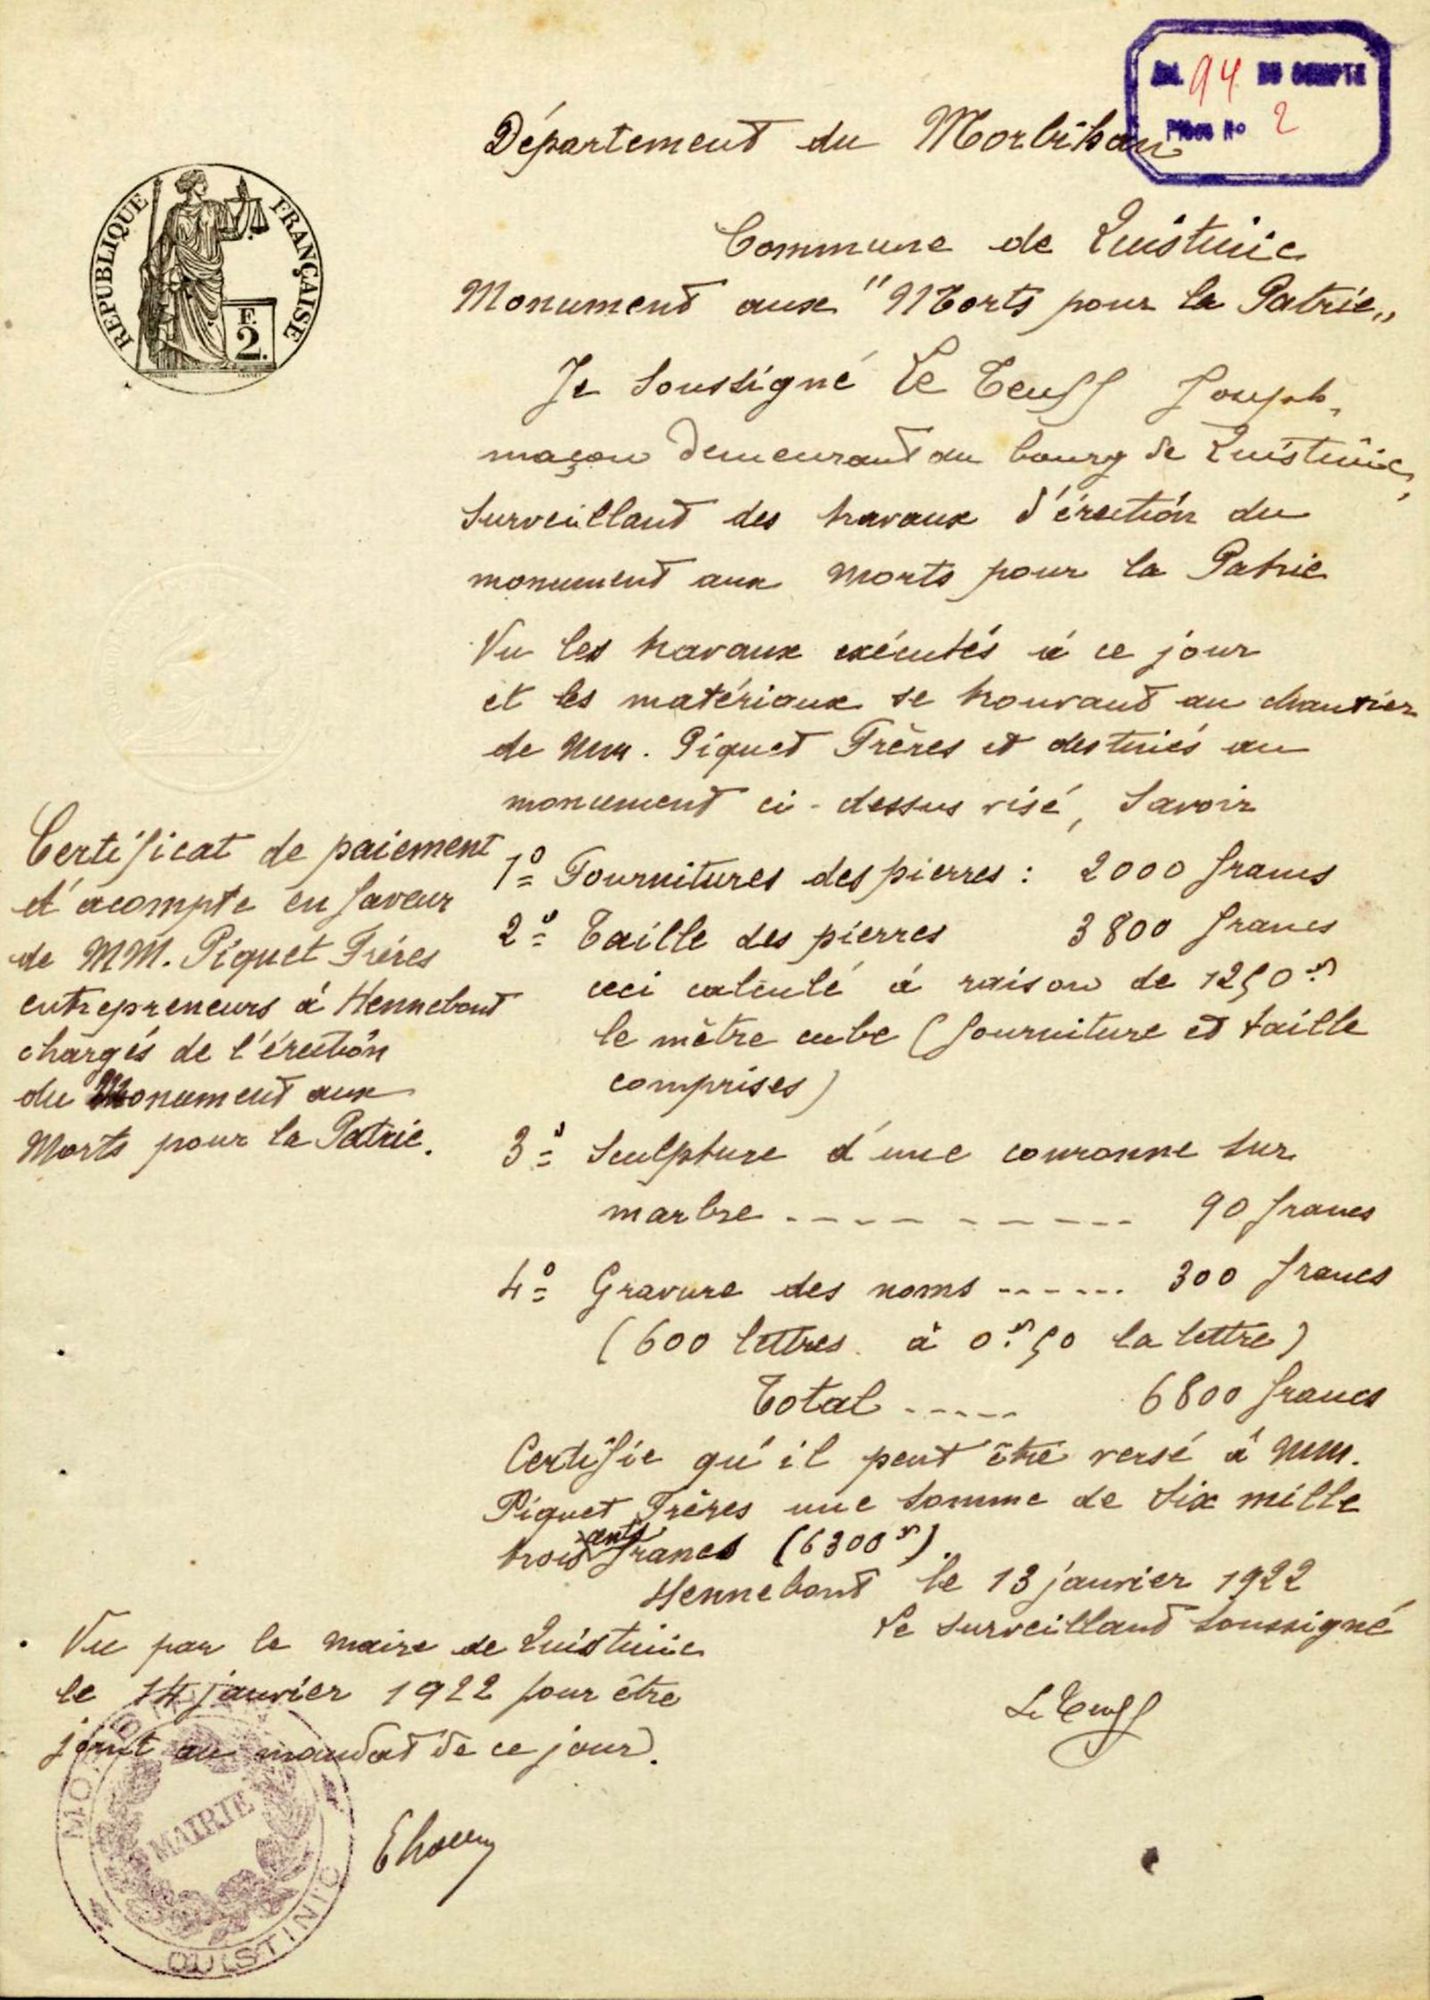 Art. 94 DU COMPTE
Pièce No 2
Département du Morbihan
RÉPUBLIQUE FRANÇAISE
F.
2.
Commune de Quistinic
Monument aux "Morts pour la Patrie„
Je soussigné Le Teuff Joseph,
maçon demeurant au bourg de Quistinic,
surveillant des travaux d'érection du
monument aux Morts pour la Patrie
Vu les travaux exécutés à ce jour
et les matériaux se trouvant au chantier
de MM. Piquet Frères et destinés au
monument ci-dessus visé, savoir
1º Fournitures des pierres : 2000 francs
2º Taille des pierres 3800 francs
ceci calculé à raison de 1250 f
le mètre cube (fourniture et taille
comprises)
3º Sculpture d'une couronne sur
marbre ---------- 90 francs
4º Gravure des noms ------ 300 francs
(600 lettres à 0f50 la lettre)
Total ----- 6800 francs
Certifie qu'il peut être versé à MM.
Piquet Frères une somme de six mille
trois cents francs (6300 f).
Hennebont le 13 janvier 1922
Le surveillant soussigné
Le Teuff
Certificat de paiement
d'acompte en faveur
de MM. Piquet Frères
entrepreneurs à Hennebont
chargés de l'érection
du Monument aux
Morts pour la Patrie.
Vu par le maire de Quistinic
le 14 janvier 1922 pour être
joint au mandat de ce jour.
MORBIHAN
MAIRIE
QUISTINIC